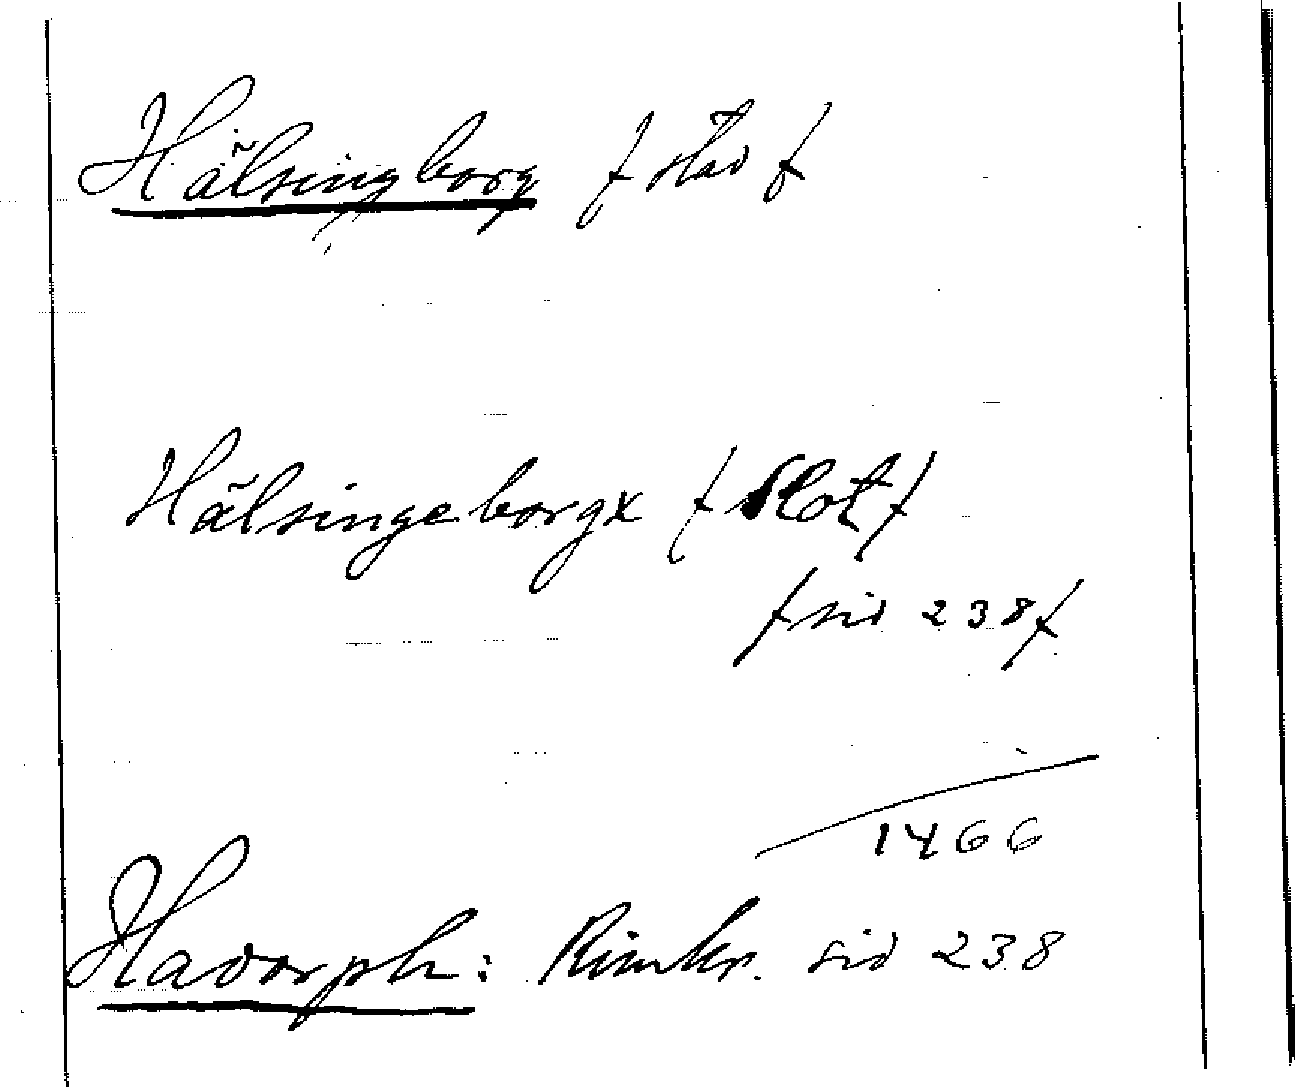 Hälsingborg /stad/
Hälsingeborgx /Slot/
/sid 238/
1466
Hadorph: Rimkr. sid 238